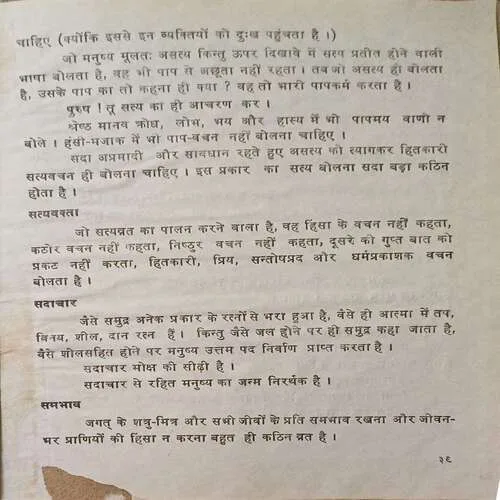 चाहिए (क्योंकि इससे इन व्यक्तियों को दुःख पहुंचता है।)
जो मनुष्य मूलतः असत्य किन्तु ऊपर दिखावे में सत्य प्रतीत होने वाली
भाषा बोलता है, वह भी पाप से अछूता नहीं रहता। तब जो असत्य ही बोलता
है, उसके पाप का तो कहना ही क्या ? वह तो भारी पापकर्म करता है।
पुरुष ! तू सत्य का ही आचरण कर।
श्रेष्ठ मानव क्रोध, लोभ, भय और हास्य में भी पापमय वाणी न
बोले। हंसी-मजाक में भी पाप-वचन नहीं बोलना चाहिए।
सदा अप्रमादी और सावधान रहते हुए असत्य को त्यागकर हितकारी
सत्यवचन ही बोलना चाहिए। इस प्रकार का सत्य बोलना सदा बड़ा कठिन
होता है।
सत्यवक्ता
जो सत्यव्रत का पालन करने वाला है, वह हिंसा के वचन नहीं कहता,
कठोर वचन नहीं कहता, निष्ठुर वचन नहीं कहता, दूसरे की गुप्त बात को
प्रकट नहीं करता, हितकारी, प्रिय, सन्तोषप्रद और धर्मप्रकाशक वचन
बोलता है।
सदाचार
जैसे समुद्र अनेक प्रकार के रत्नों से भरा हुआ है, वैसे ही आत्मा में तप,
विनय, शील, दान रत्न हैं। किन्तु जैसे जल होने पर ही समुद्र कहा जाता है,
वैसे शीलसहित होने पर मनुष्य उत्तम पद निर्वाण प्राप्त करता है।
सदाचार मोक्ष की सीढ़ी है।
सदाचार से रहित मनुष्य का जन्म निरर्थक है।
समभाव
जगत् के शत्रु-मित्र और सभी जीवों के प्रति समभाव रखना और जीवन-
भर प्राणियों की हिंसा न करना बहुत ही कठिन व्रत है।
३९